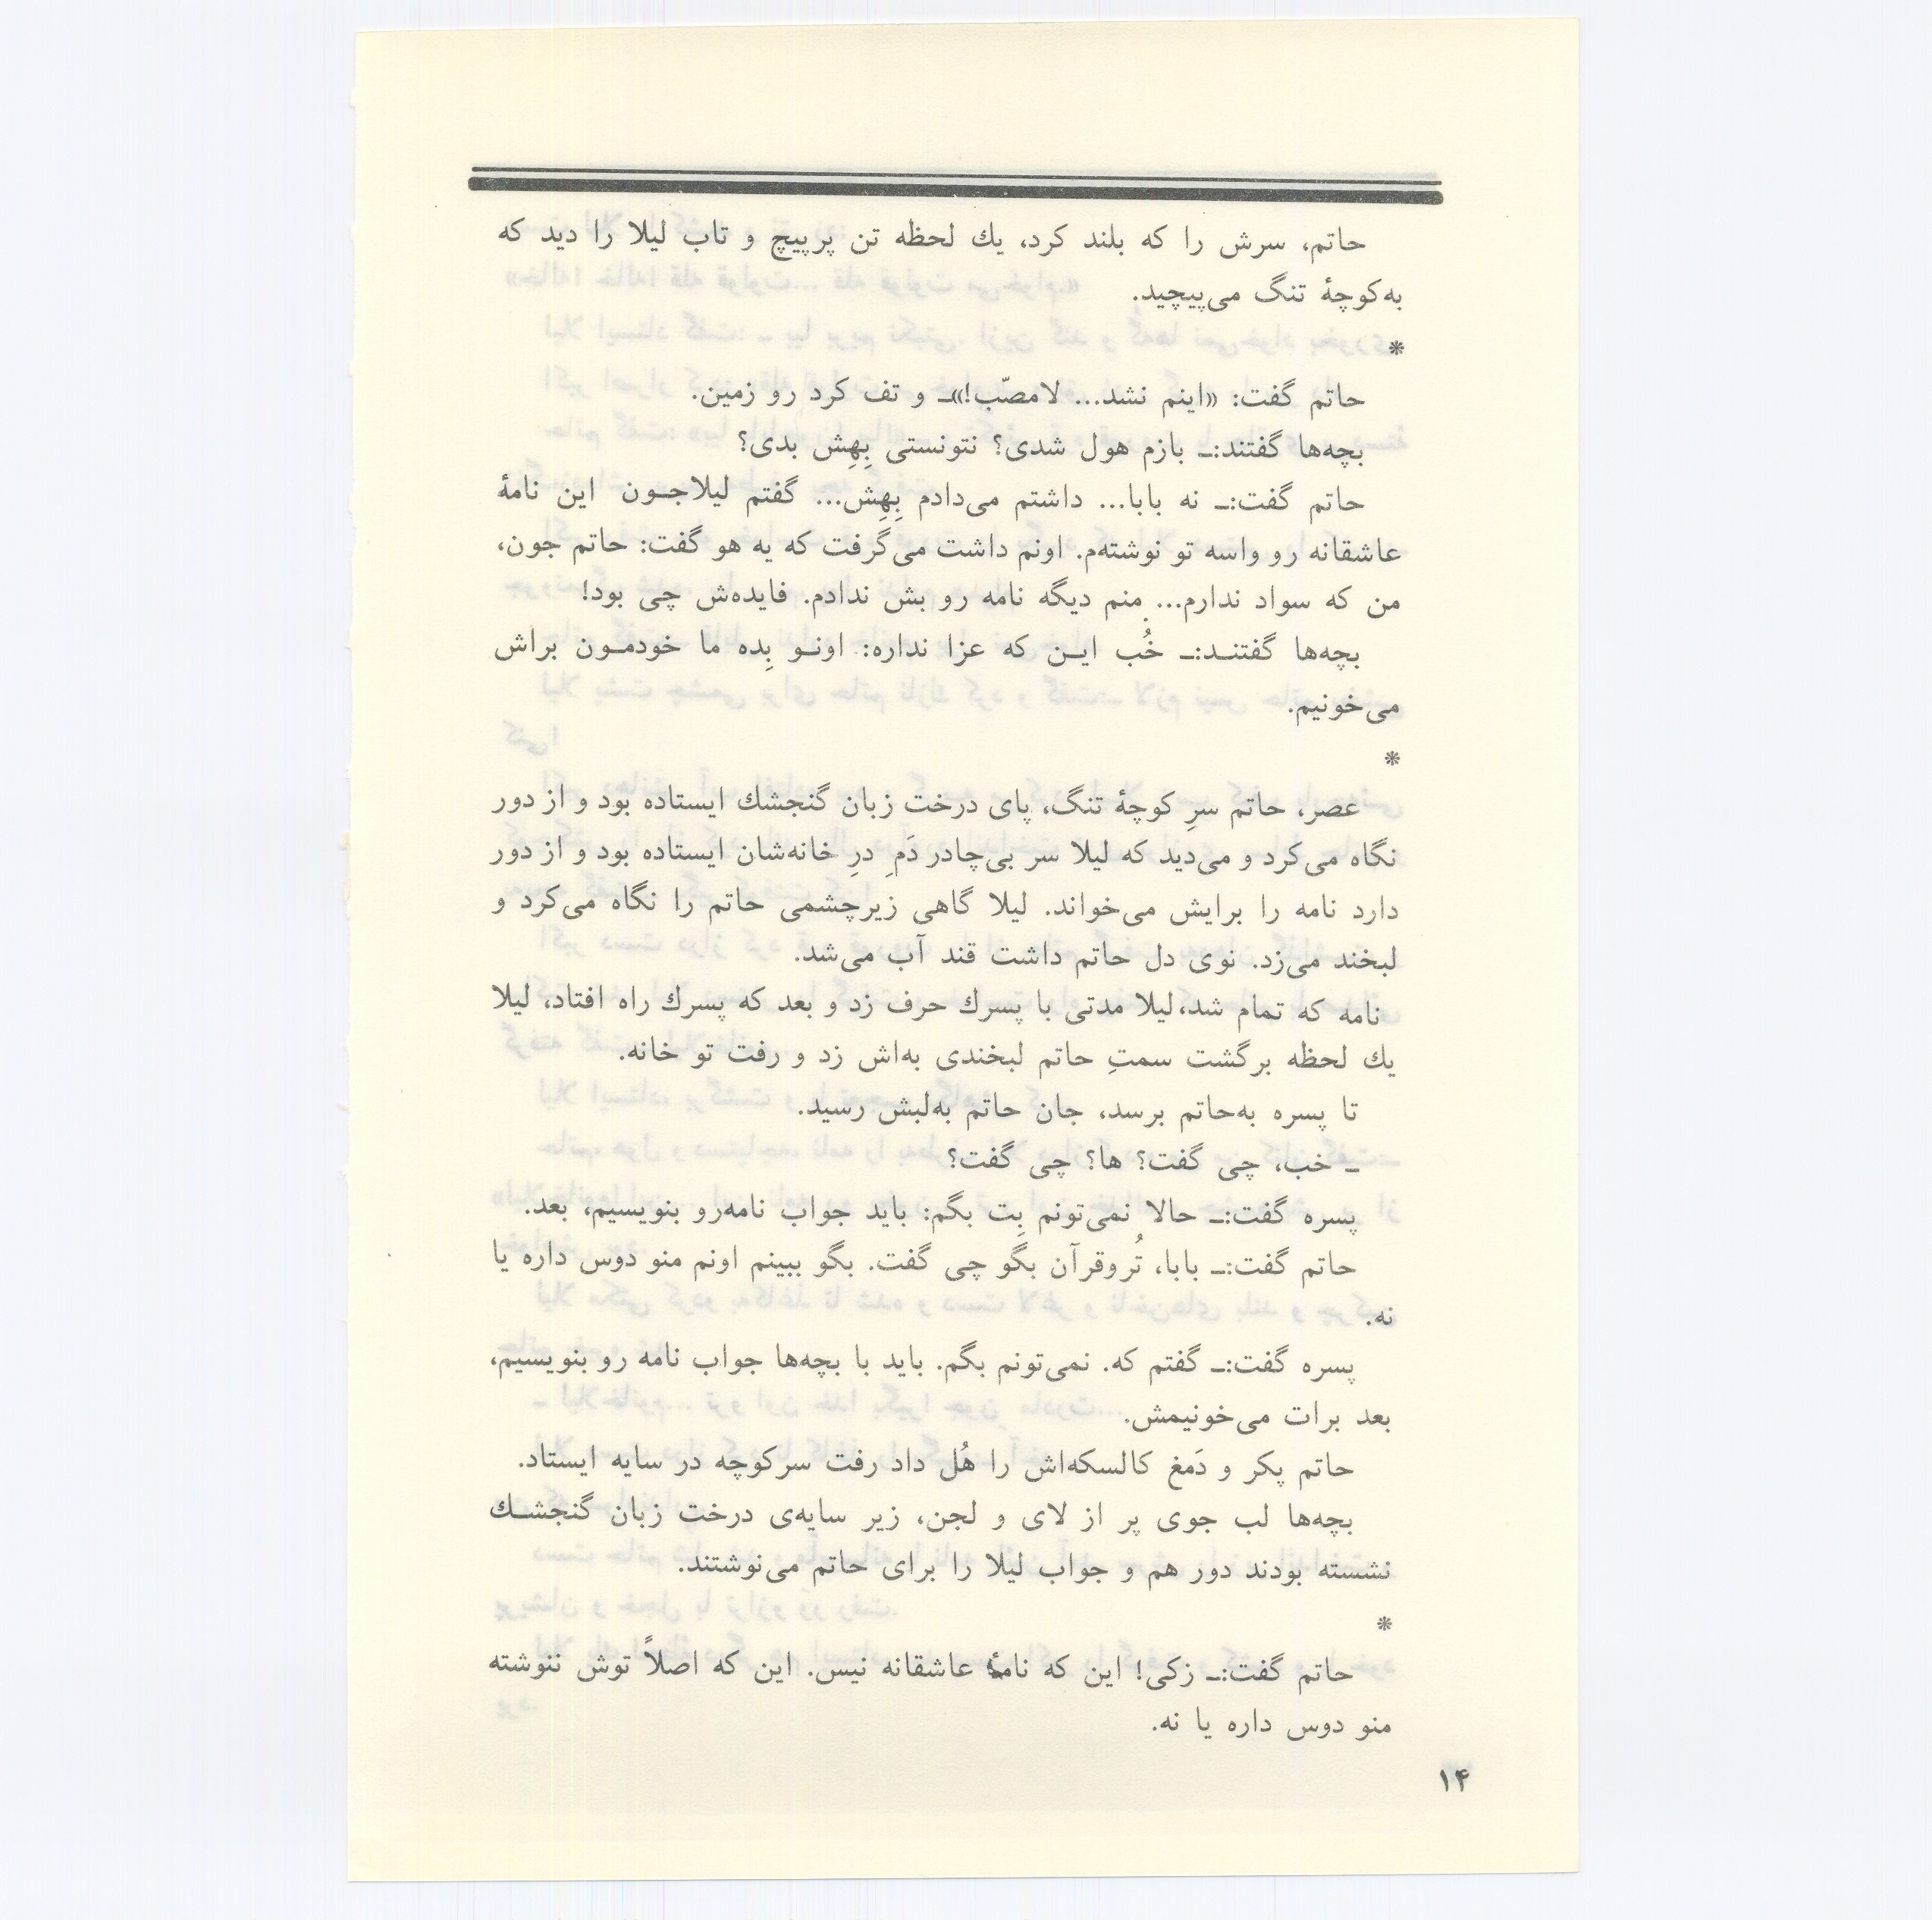 حاتم، سرش را که بلند کرد، یك لحظه تن پرپیچ و تاب لیلا را دید که
به‌کوچهٔ تنگ می‌پیچید.
*
حاتم گفت: «اینم نشد... لامصّب!»ـ و تف کرد رو زمین.
بچه‌ها گفتند:ـ بازم هول شدی؟ نتونستی بِهِش بدی؟
حاتم گفت:ـ نه بابا... داشتم می‌دادم بِهِش... گفتم لیلاجـون این نامهٔ
عاشقانه رو واسه تو نوشته‌م. اونم داشت می‌گرفت که یه هو گفت: حاتم جون،
من که سواد ندارم... منم دیگه نامه رو بش ندادم. فایده‌ش چی بود!
بچه‌ها گفتنـد:ـ خُب ایـن که عزا نداره: اونـو بِده ما خودمـون براش
می‌خونیم.
*
عصر، حاتم سرِ کوچهٔ تنگ، پای درخت زبان گنجشك ایستاده بود و از دور
نگاه می‌کرد و می‌دید که لیلا سر بی‌چادر دَمِ درِ خانه‌شان ایستاده بود و از دور
دارد نامه را برایش می‌خواند. لیلا گاهی زیرچشمی حاتم را نگاه می‌کرد و
لبخند می‌زد. نوی دل حاتم داشت قند آب می‌شد.
نامه که تمام شد،لیلا مدتی با پسرك حرف زد و بعد که پسرك راه افتاد، لیلا
یك لحظه برگشت سمتِ حاتم لبخندی به‌اش زد و رفت تو خانه.
تا پسره به‌حاتم برسد، جان حاتم به‌لبش رسید.
ـ خب، چی گفت؟ ها؟ چی گفت؟
پسره گفت:ـ حالا نمی‌تونم بِت بگم: باید جواب نامه‌رو بنویسیم، بعد.
حاتم گفت:ـ بابا، تُروقرآن بگو چی گفت. بگو ببینم اونم منو دوس داره یا
نه.
پسره گفت:ـ گفتم که. نمی‌تونم بگم. باید با بچه‌ها جواب نامه رو بنویسیم،
بعد برات می‌خونیمش.
حاتم پکر و دَمغ کالسکه‌اش را هُل داد رفت سرکوچه در سایه ایستاد.
بچه‌ها لب جوی پر از لای و لجن، زیر سایه‌ی درخت زبان گنجشـك
نشسته بودند دور هم و جواب لیلا را برای حاتم می‌نوشتند.
*
حاتم گفت:ـ زکی! این که نامهٔ عاشقانه نیس. این که اصلاً توش ننوشته
منو دوس داره یا نه.
۱۴